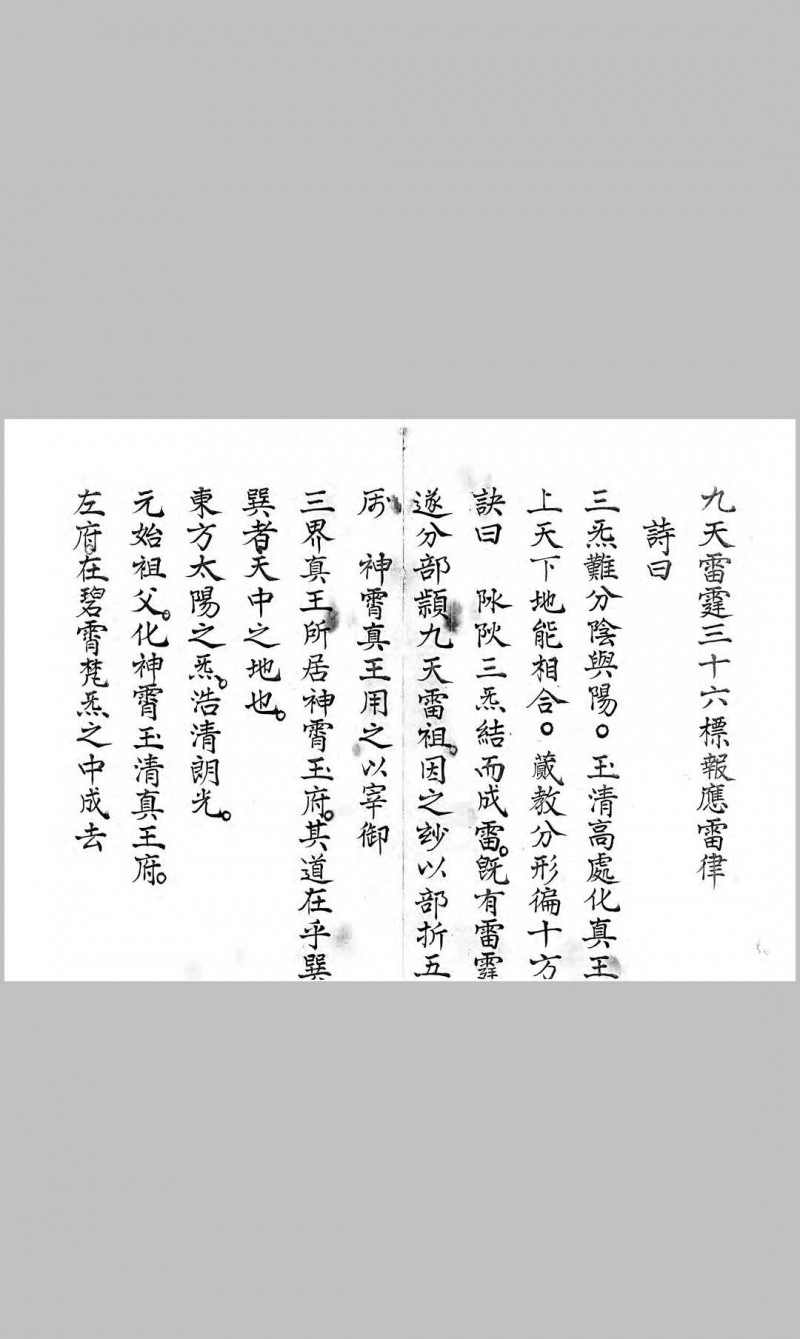 九天雷霆三十六標報應雷律
詩曰
三炁難分陰與陽。玉清高處化真王
上天下地能相合。蔵教分形徧十方
訣曰 阥阦三炁結而成雷。既有雷霆
遂分部顥九天雷祖。因之玅以部折五
属 神霄真王用之以宰御
三界真王所居神霄玉府。其道在乎巽
巽者天中之地也。
東方太陽之炁。浩清朗光。
元始祖父。化神霄玉清真王府。
左府在碧霄梵炁之中成去